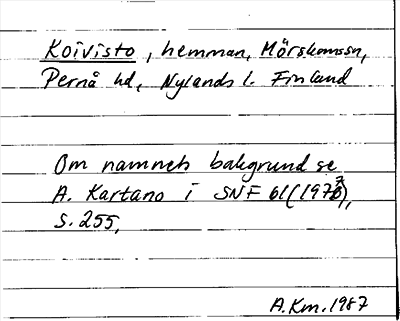 Koivisto, hemman, Mörskomssn,
Pernå hd, Nylands l. Finland
Om namnets bakgrund se
A. Kartano i SNF 61 (1973),
s. 255.
A.Km. 1987